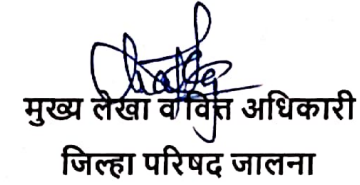 मुख्य लेखा व वित्त अधिकारी
जिल्हा परिषद जालना